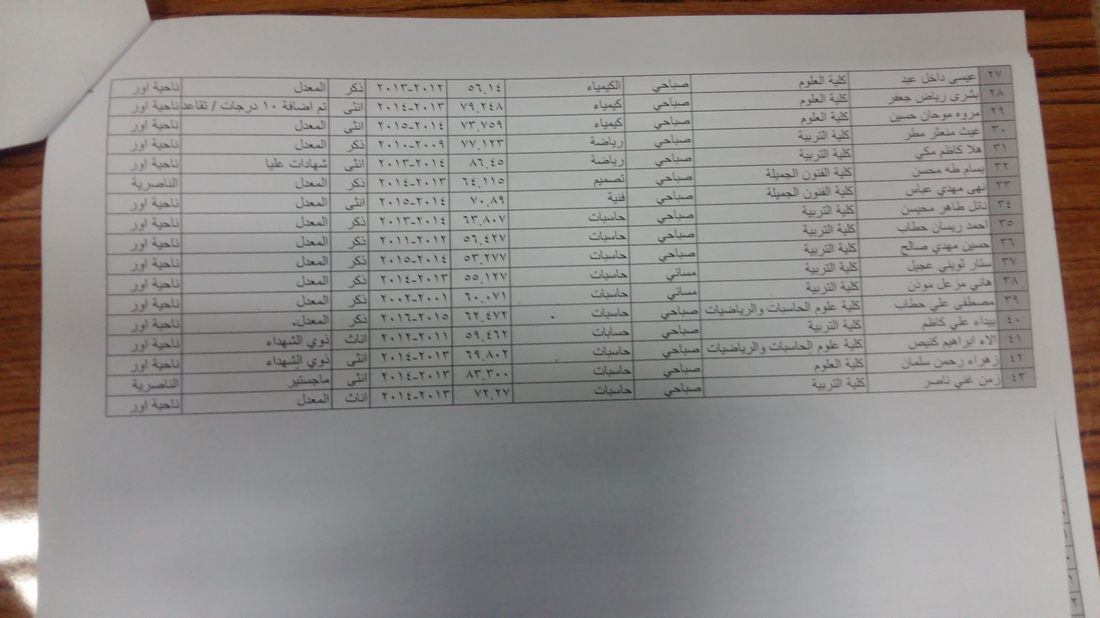 ٢٧ عيسى داخل عبد كلية العلوم صباحي الكيمياء ٥٦.١٤ ٢٠١٢-٢٠١٣ ذكر المعدل ناحية اور
٢٨ بشرى رياض جعفر كلية العلوم صباحي كيمياء ٧٩.٢٤٨ ٢٠١٣-٢٠١٤ انثى تم اضافة ١٠ درجات / تقاعد ناحية اور
٢٩ مروه موحان حسين كلية العلوم صباحي كيمياء ٧٣.٧٥٩ ٢٠١٤-٢٠١٥ انثى المعدل ناحية اور
٣٠ غيث منعثر مطر كلية التربية صباحي رياضة ٧٧.١٢٣ ٢٠٠٩-٢٠١٠ ذكر المعدل ناحية اور
٣١ هلا كاظم مكي كلية التربية صباحي رياضة ٨٦.٤٥ ٢٠١٤-٢٠١٣ انثى شهادات عليا ناحية اور
٣٢ بسام طه محسن كلية الفنون الجميلة صباحي تصميم ٦٤.١١٥ ٢٠١٣-٢٠١٤ ذكر المعدل الناصرية
٣٣ نهى مهدي عباس كلية الفنون الجميلة صباحي فنية ٧٠.٨٩ ٢٠١٤-٢٠١٥ انثى المعدل ناحية اور
٣٤ نائل طاهر محيسن كلية التربية صباحي حاسبات ٦٣.٨٠٧ ٢٠١٤-٢٠١٣ ذكر المعدل ناحية اور
٣٥ احمد ريسان حطاب كلية التربية صباحي حاسبات ٥٦.٤٢٧ ٢٠١٢-٢٠١١ ذكر المعدل ناحية اور
٣٦ حسين مهدي صالح كلية التربية صباحي حاسبات ٥٣.٢٧٧ ٢٠١٤-٢٠١٥ ذكر المعدل ناحية اور
٣٧ ستار ثويني عجيل كلية التربية مسائي حاسبات ٥٥.١٢٧ ٢٠١٣-٢٠١٤ ذكر المعدل ناحية اور
٣٨ هاني مزعل موذن كلية التربية مسائي حاسبات ٦٠.٠٧١ ٢٠٠١-٢٠٠٢ ذكر المعدل ناحية اور
٣٩ مصطفى علي حطاب كلية علوم الحاسبات والرياضيات صباحي حاسبات ٦٢.٤٧٢ ٢٠١٥-٢٠١٦ ذكر المعدل. ناحية اور
٤٠ بيداء علي كاظم كلية التربية صباحي حسابات ٥٩.٤٦٢ ٢٠١١-٢٠١٢ اناث ذوي الشهداء ناحية اور
٤١ الاء ابراهيم كنيص كلية علوم الحاسبات والرياضيات صباحي حاسبات ٦٩.٨٠٢ ٢٠١٣-٢٠١٤ انثى ذوي الشهداء ناحية اور
٤٢ زهراء رحمن سلمان كلية العلوم صباحي حاسبات ٨٣.٣٠٠ ٢٠١٣-٢٠١٤ انثى ماجستير الناصرية
٤٣ زمن غني ناصر كلية التربية صباحي حاسبات ٧٢.٢٧ ٢٠١٣-٢٠١٤ اناث المعدل ناحية اور